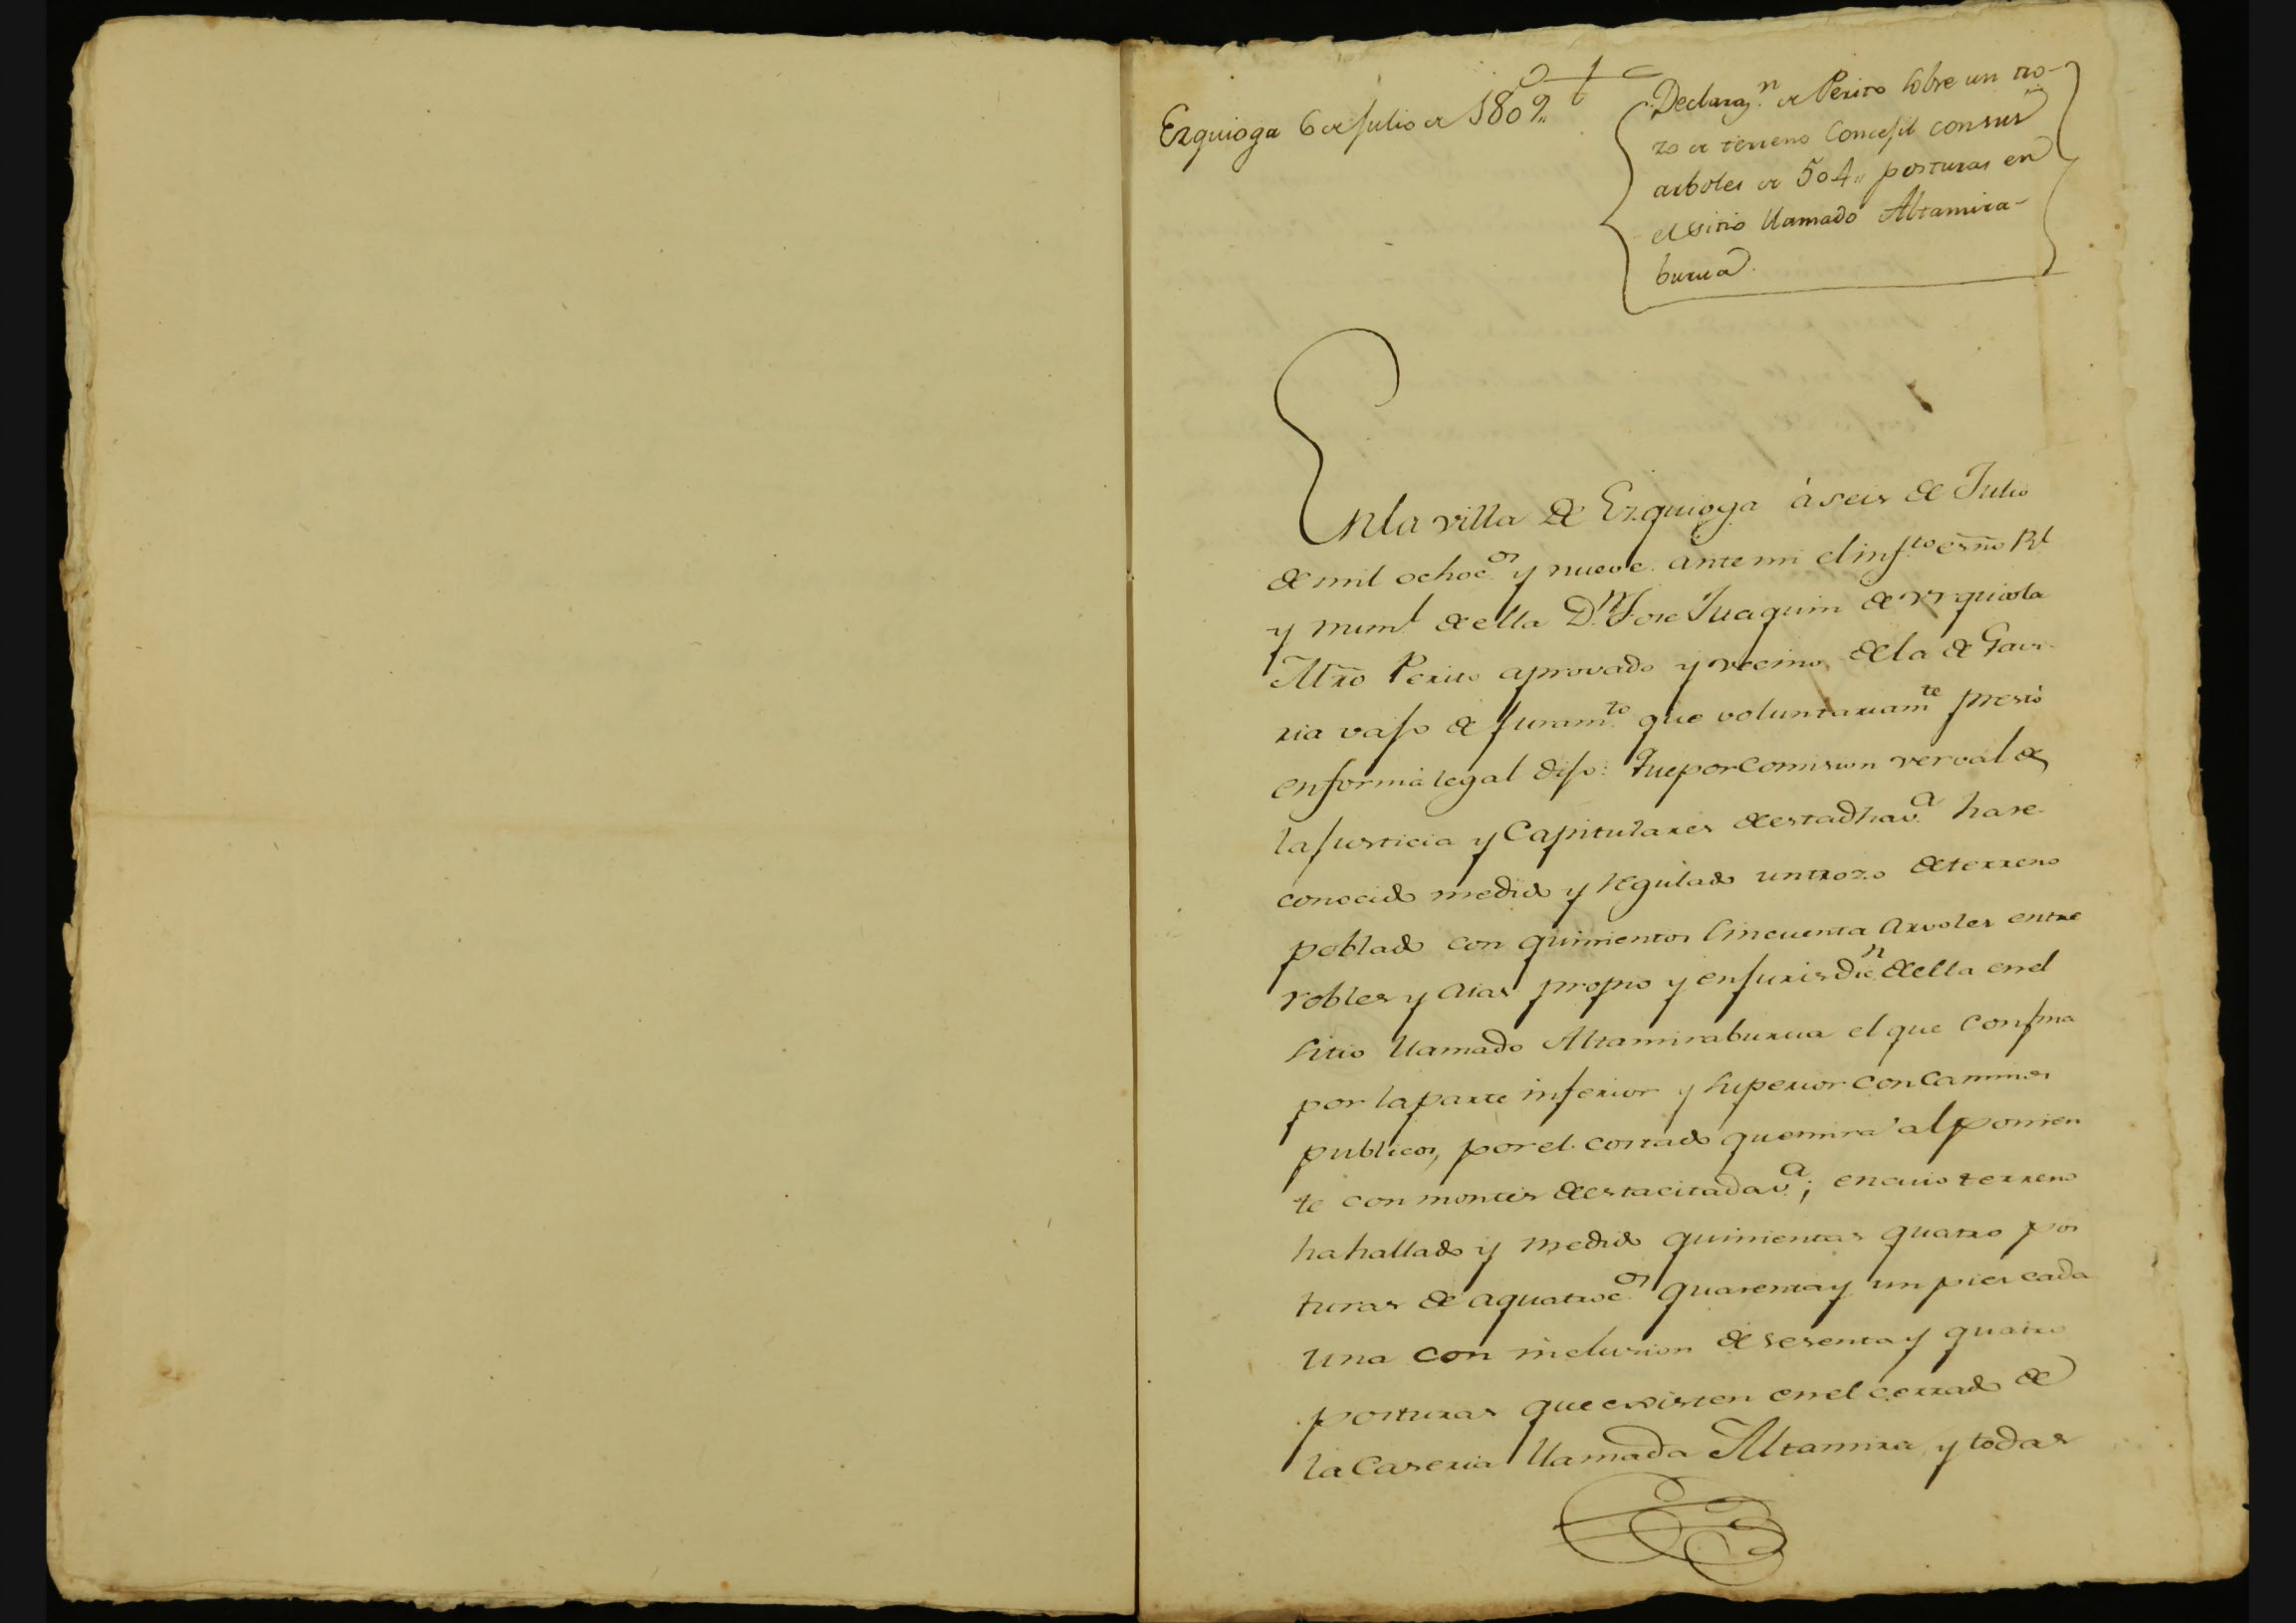 Ezquioga 6 de Julio de 1809,,
Declaraz.n de Perito sobre un tro-
zo de terreno Concejil con sus
arboles de 504,, posturas en
el sitio llamado Altamira-
burua.
En la villa de Ezquioga à seis de Julio
de mil ochoc.os y nueve ante mi el inf.to esño Rl
y num.l de ella D.n Jose Juaquin de Urquiola
Mrõ Perito aprovado y vecino de la de Gavi-
ria vajo de juram.to que voluntariam.te prestò
en forma legal dijo: Que por comision verval de
la Justicia y Capitulares de esta dha v.a ha re-
conocido medido y regulado un trozo de terreno
poblado con quinientos cincuenta arvoles entre
robles y aias propio y en jurisdic.n de ella en el
sitio llamado Altamiraburua el que confina
por la parte inferior y superior con caminos
publicos, por el costado que mira al ponien
te con montes de esta citada v.a; en cuio terreno
ha hallado y medido quinientas quatro pos
turas de a quatroc.os quarenta y un pies cada
una con inclusion de sesenta y quatro
posturas que existen en el cerrado de
la Caseria llamada Altamira, y todas